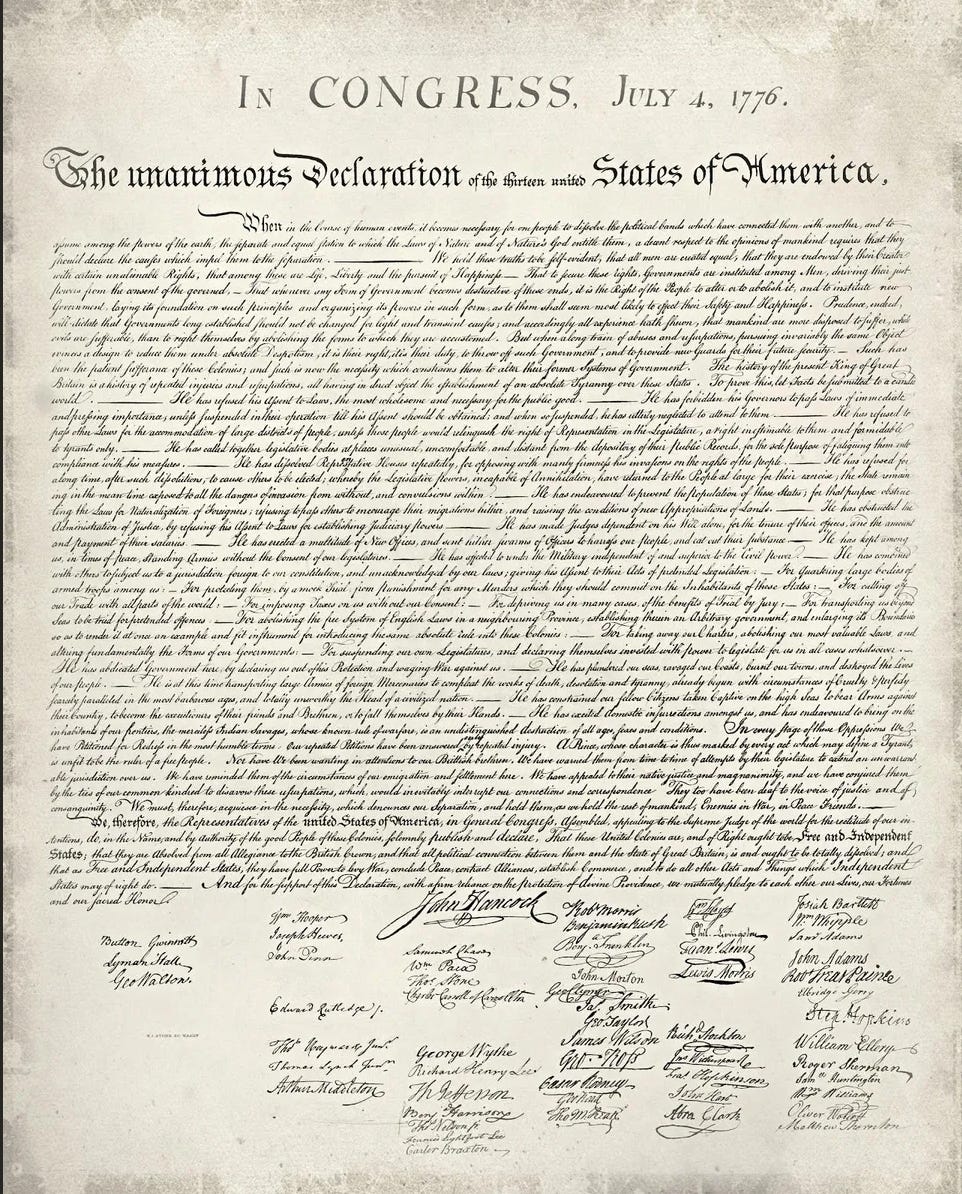 IN CONGRESS, JULY 4, 1776.
The unanimous Declaration of the thirteen united States of America,
When in the Course of human events, it becomes necessary for one people to dissolve the political bands which have connected them with another, and to
assume among the powers of the earth, the separate and equal station to which the Laws of Nature and of Nature's God entitle them, a decent respect to the opinions of mankind requires that they
should declare the causes which impel them to the separation. — We hold these truths to be self-evident, that all men are created equal, that they are endowed by their Creator
with certain unalienable Rights, that among these are Life, Liberty and the pursuit of Happiness — That to secure these rights, Governments are instituted among Men, deriving their just
powers from the consent of the governed, — That whenever any Form of Government becomes destructive of these ends, it is the Right of the People to alter or to abolish it, and to institute new
Government, laying its foundation on such principles and organizing its powers in such form, as to them shall seem most likely to effect their Safety and Happiness. Prudence, indeed,
will dictate that Governments long established should not be changed for light and transient causes; and accordingly all experience hath shewn, that mankind are more disposed to suffer, while
evils are sufferable, than to right themselves by abolishing the forms to which they are accustomed. But when a long train of abuses and usurpations, pursuing invariably the same Object
evinces a design to reduce them under absolute Despotism, it is their right, it is their duty, to throw off such Government, and to provide new Guards for their future security. — Such has
been the patient sufferance of these Colonies; and such is now the necessity which constrains them to alter their former Systems of Government. The history of the present King of Great
Britain is a history of repeated injuries and usurpations, all having in direct object the establishment of an absolute Tyranny over these States. To prove this, let Facts be submitted to a candid
world. — He has refused his Assent to Laws, the most wholesome and necessary for the public good. — He has forbidden his Governors to pass Laws of immediate
and pressing importance, unless suspended in their operation till his Assent should be obtained; and when so suspended, he has utterly neglected to attend to them. — He has refused to
pass other Laws for the accommodation of large districts of people, unless those people would relinquish the right of Representation in the Legislature, a right inestimable to them and formidable
to tyrants only. — He has called together legislative bodies at places unusual, uncomfortable, and distant from the depository of their Public Records, for the sole purpose of fatiguing them into
compliance with his measures. — He has dissolved Representative Houses repeatedly, for opposing with manly firmness his invasions on the rights of the people. — He has refused for
a long time, after such dissolutions, to cause others to be elected; whereby the Legislative powers, incapable of Annihilation, have returned to the People at large for their exercise; the State remain
ing in the mean time exposed to all the dangers of invasion from without, and convulsions within. — He has endeavoured to prevent the population of these States; for that purpose obstruc
ting the Laws for Naturalization of Foreigners; refusing to pass others to encourage their migrations hither, and raising the conditions of new Appropriations of Lands. — He has obstructed the
Administration of Justice, by refusing his Assent to Laws for establishing Judiciary powers — He has made Judges dependent on his Will alone, for the tenure of their offices, and the amount
and payment of their salaries. — He has erected a multitude of New Offices, and sent hither swarms of Officers to harrass our people, and eat out their substance. — He has kept among
us, in times of peace, Standing Armies without the Consent of our legislatures. — He has affected to render the Military independent of and superior to the Civil power. — He has combined
with others to subject us to a jurisdiction foreign to our constitution, and unacknowledged by our laws; giving his Assent to their Acts of pretended Legislation: — For Quartering large bodies of
armed troops among us: — For protecting them, by a mock Trial, from punishment for any Murders which they should commit on the Inhabitants of these States: — For cutting off
our Trade with all parts of the world: — For imposing Taxes on us without our Consent: — For depriving us in many cases, of the benefits of Trial by Jury: — For transporting us beyond
Seas to be tried for pretended offences — For abolishing the free System of English Laws in a neighbouring Province, establishing therein an Arbitrary government, and enlarging its Boundaries
so as to render it at once an example and fit instrument for introducing the same absolute rule into these Colonies: — For taking away our Charters, abolishing our most valuable Laws, and
altering fundamentally the Forms of our Governments: — For suspending our own Legislatures, and declaring themselves invested with power to legislate for us in all cases whatsoever. —
He has abdicated Government here, by declaring us out of his Protection and waging War against us. — He has plundered our seas, ravaged our Coasts, burnt our towns, and destroyed the lives
of our people. — He is at this time transporting large Armies of foreign Mercenaries to compleat the works of death, desolation and tyranny, already begun with circumstances of Cruelty & perfidy
scarcely paralleled in the most barbarous ages, and totally unworthy the Head of a civilized nation. — He has constrained our fellow Citizens taken Captive on the high Seas to bear Arms against
their Country, to become the executioners of their friends and Brethren, or to fall themselves by their Hands. — He has excited domestic insurrections amongst us, and has endeavoured to bring on the
inhabitants of our frontiers, the merciless Indian Savages, whose known rule of warfare, is an undistinguished destruction of all ages, sexes and conditions. In every stage of these Oppressions We
have Petitioned for Redress in the most humble terms: Our repeated Petitions have been answered only by repeated injury. A Prince, whose character is thus marked by every act which may define a Tyrant,
is unfit to be the ruler of a free people. Nor have We been wanting in attentions to our Brittish brethren. We have warned them from time to time of attempts by their legislature to extend an unwarrant
able jurisdiction over us. We have reminded them of the circumstances of our emigration and settlement here. We have appealed to their native justice and magnanimity, and we have conjured them
by the ties of our common kindred to disavow these usurpations, which, would inevitably interrupt our connections and correspondence They too have been deaf to the voice of justice and of
consanguinity. We must, therefore, acquiesce in the necessity, which denounces our Separation, and hold them, as we hold the rest of mankind, Enemies in War, in Peace Friends. —
We, therefore, the Representatives of the united States of America, in General Congress, Assembled, appealing to the Supreme Judge of the world for the rectitude of our in-
tentions, do, in the Name, and by Authority of the good People of these Colonies, solemnly publish and declare, That these United Colonies are, and of Right ought to be Free and Independent
States; that they are Absolved from all Allegiance to the British Crown, and that all political connection between them and the State of Great Britain, is and ought to be totally dissolved; and
that as Free and Independent States, they have full Power to levy War, conclude Peace, contract Alliances, establish Commerce, and to do all other Acts and Things which Independent
States may of right do. — And for the support of this Declaration, with a firm reliance on the protection of divine Providence, we mutually pledge to each other our Lives, our Fortunes
and our sacred Honor
Button Gwinnett
Lyman Hall
Geo Walton.
Wm Hooper
Joseph Hewes,
John Penn
Edward Rutledge /.
Thos Heyward Junr.
Thomas Lynch Junr.
Arthur Middleton
John Hancock
Samuel Chase
Wm Paca
Thos Stone
Charles Carroll of Carrollton
George Wythe
Richard Henry Lee
Th Jefferson
Benj Harrison
Thos Nelson jr.
Francis Lightfoot Lee
Carter Braxton
Robt Morris
Benjamin Rush
Benja Franklin
John Morton
Geo Clymer
Jas. Smith
Geo Taylor
James Wilson
Geo. Ross
Caesar Rodney
Geo Read
Tho M:Kean
Wm Floyd
Phil. Livingston
Frans. Lewis
Lewis Morris
Richd. Stockton
Jno Witherspoon
Fras. Hopkinson
John Hart
Abra Clark
Josiah Bartlett
Wm Whipple
Saml Adams
John Adams
Robt Treat Paine
Elbridge Gerry
Step Hopkins
William Ellery
Roger Sherman
Saml Huntington
Wm Williams
Oliver Wolcott
Matthew Thornton